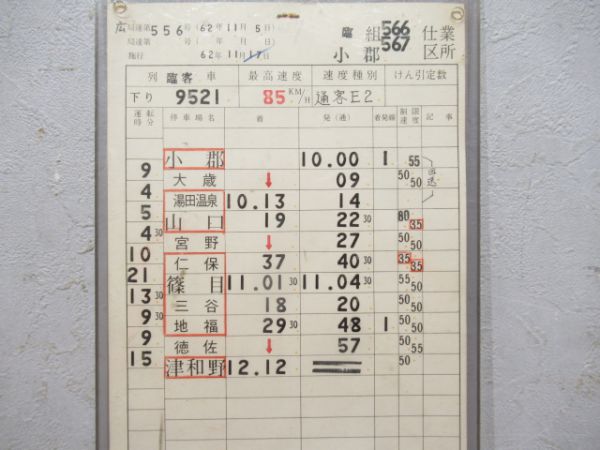 広 局運第 556号 (62年11月5日)
局運第 号( 年 月 日)
施行 62年11月17日
臨 組 566 567 仕業
小郡 区所
列 臨客 車 最高速度 速度種別 けん引定数
下り 9521 85KM/H 通客E2
運転時分 停車場名 着 発(通) 着発線 制限速度 記事
小郡 10.00 1 55
9
大歳 ↓ 09 50 50 回送
4
湯田温泉 10.13 14
5
山口 19 22 30 80 35
4 30
宮野 ↓ 27 50 50
10
仁保 37 40 30 35 35
21
篠目 11.01 30 11.04 30 55 50
13 30
三谷 18 20 50 50
9
地福 29 30 48 1 50 50
9 30
徳佐 ↓ 57 50 55
15
津和野 12.12 50